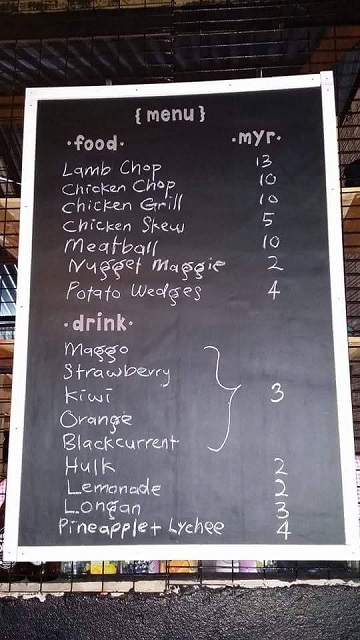 {menu}
·food· ·myr·
Lamb Chop 13
Chicken Chop 10
Chicken Grill 10
Chicken Skew 5
Meatball 10
Nugget Maggie 2
Potato Wedges 4
·drink·
Maggo
Strawberry
Kiwi 3
Orange
Blackcurrent
Hulk 2
Lemonade 2
Longan 3
Pineapple + Lychee 4